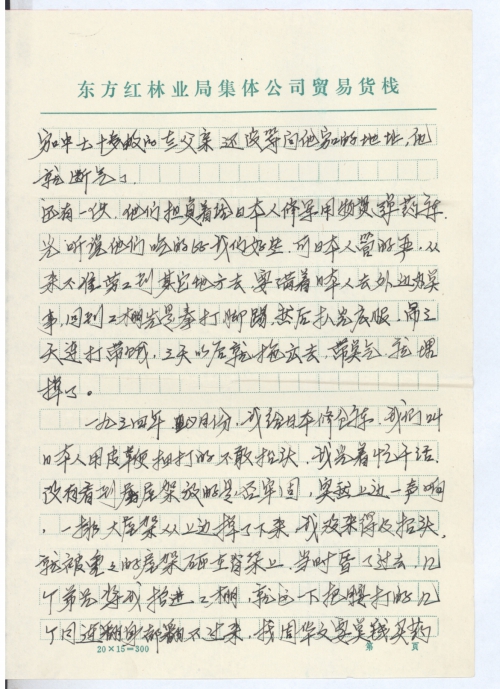 东方红林业局集体公司贸易货栈
家中七十多岁的老父亲 还没等问他家的地址，他
就断气了。
还有一伙，他们担负着给日本人修军用物资弹药库，
光听说他们吃的比我们好些，可日本人管的严，从
来不准劳工到其它地方去，要瞒着日本人去外边办点
事，回到工棚先是拳打脚踢，然后扒光衣服，吊三
天连打带饿，三天以后就拖出去，带点气，就埋
掉了。
一九三四年四月份，我给日本修仓库，我们叫
日本人用皮鞭抽打的不敢抬头，我光着忙干活，
没有看到房屋架放的是否牢固，突然上边一声响
，一排大房架从上边掉了下来，我没来得及抬头，
就被重重的房架砸在脊梁上，当时昏了过去，几
个弟兄将我抬进工棚，就这一下把腰打的几
个月连翻身都翻不过来，找周华文要点钱买药
20×15=300
第 页